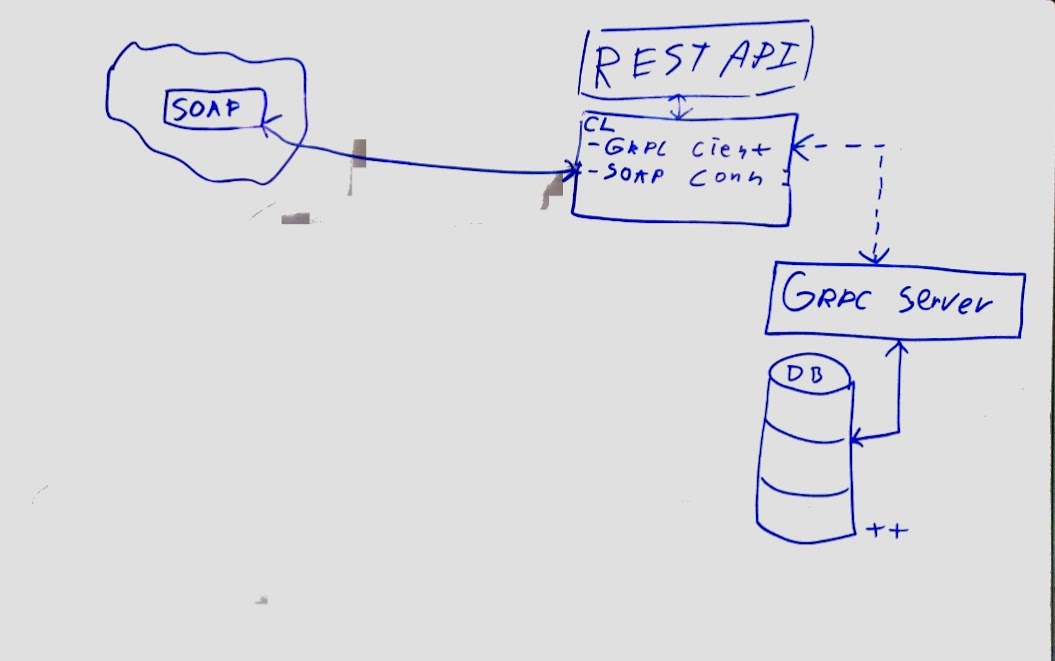 REST API
SOAP
CL
-GRPC Cient
-SOAP Conn
GRPC Server
DB
++